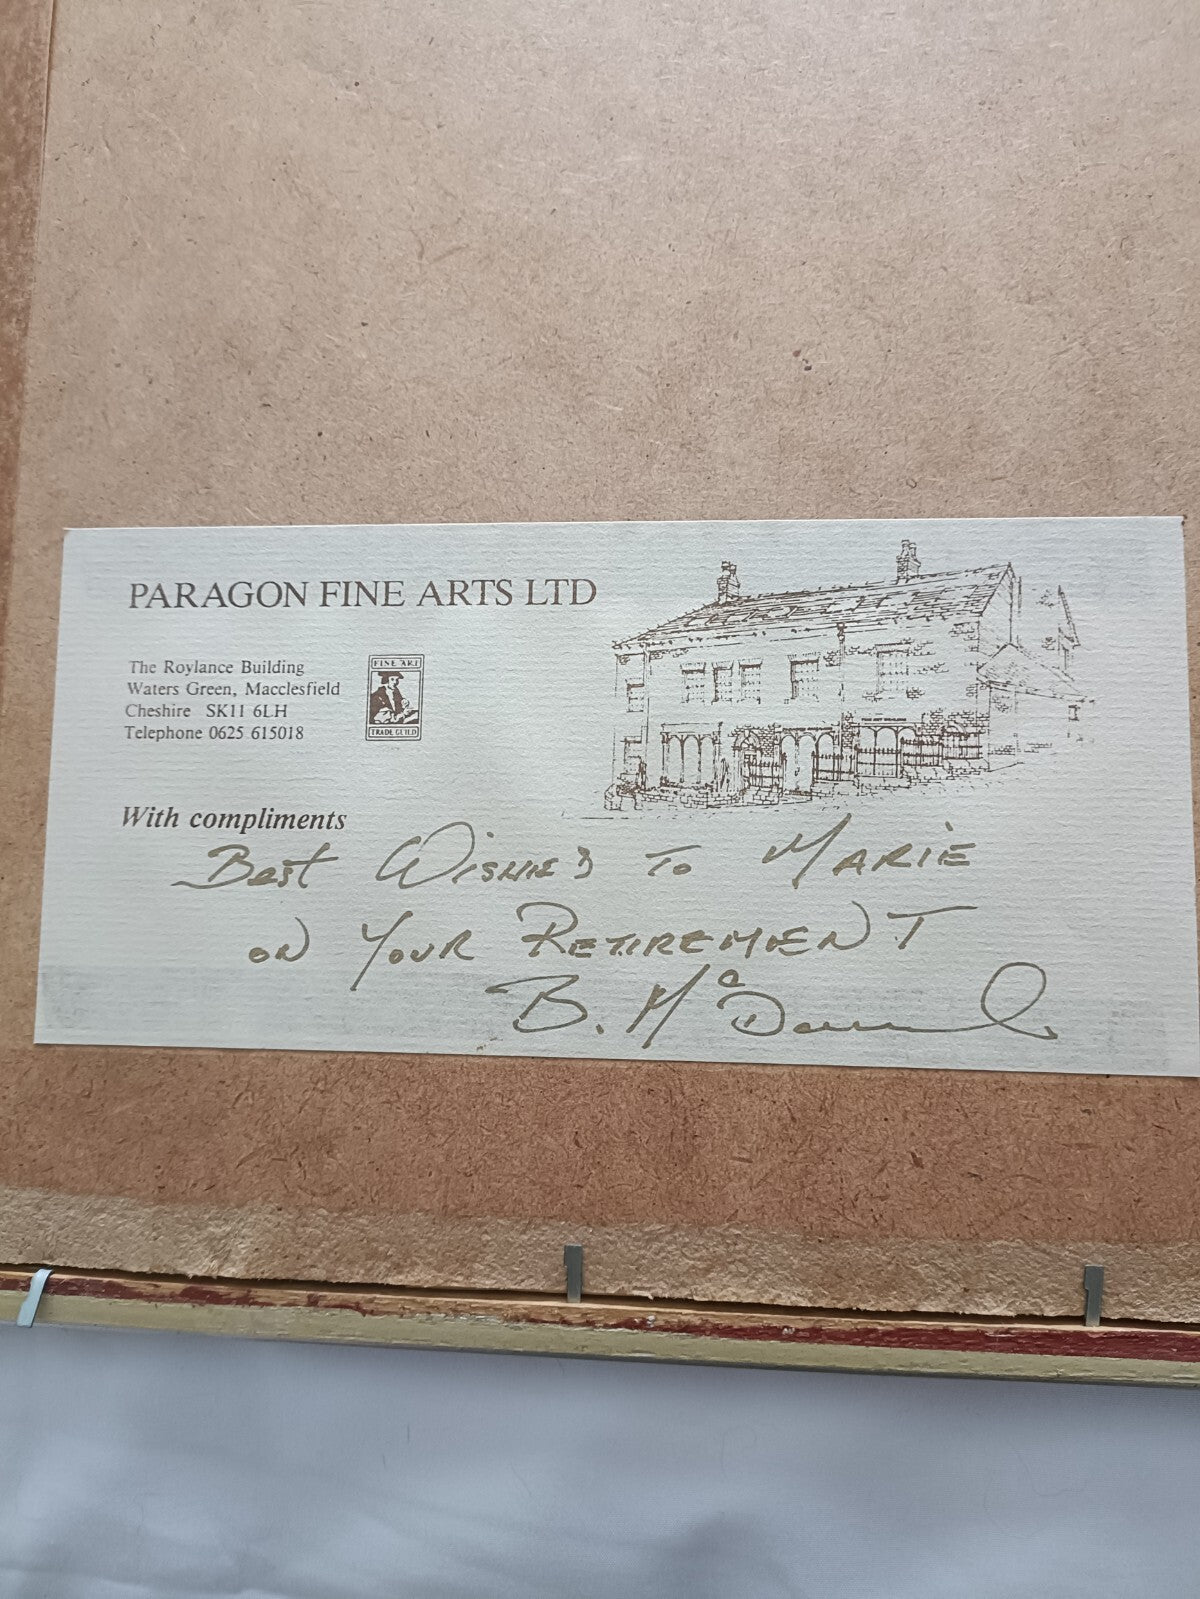 PARAGON FINE ARTS LTD
The Roylance Building
Waters Green, Macclesfield
Cheshire SK11 6LH
Telephone 0625 615018
FINE ART
TRADE GUILD
With compliments
Best Wishes To Marie
on Your Retirement
B.